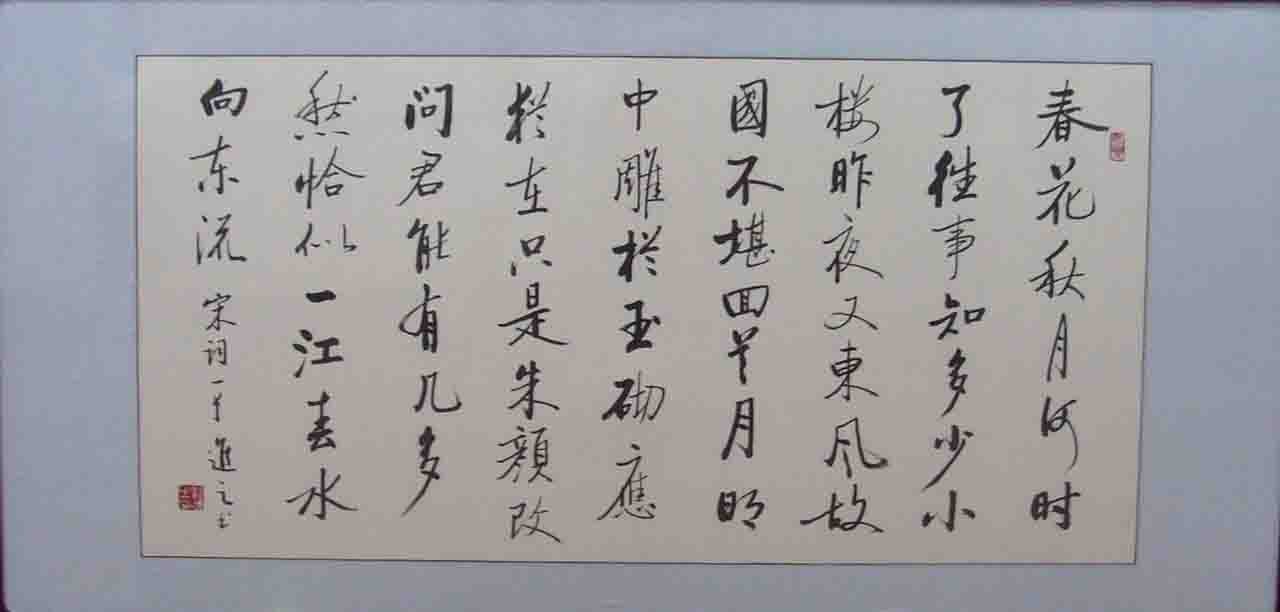 春花秋月何时
了往事知多少小
楼昨夜又東风故
國不堪回首月明
中雕栏玉砌應
犹在只是朱顔改
问君能有几多
愁恰似一江春水
向东流 宋词一首 進之书